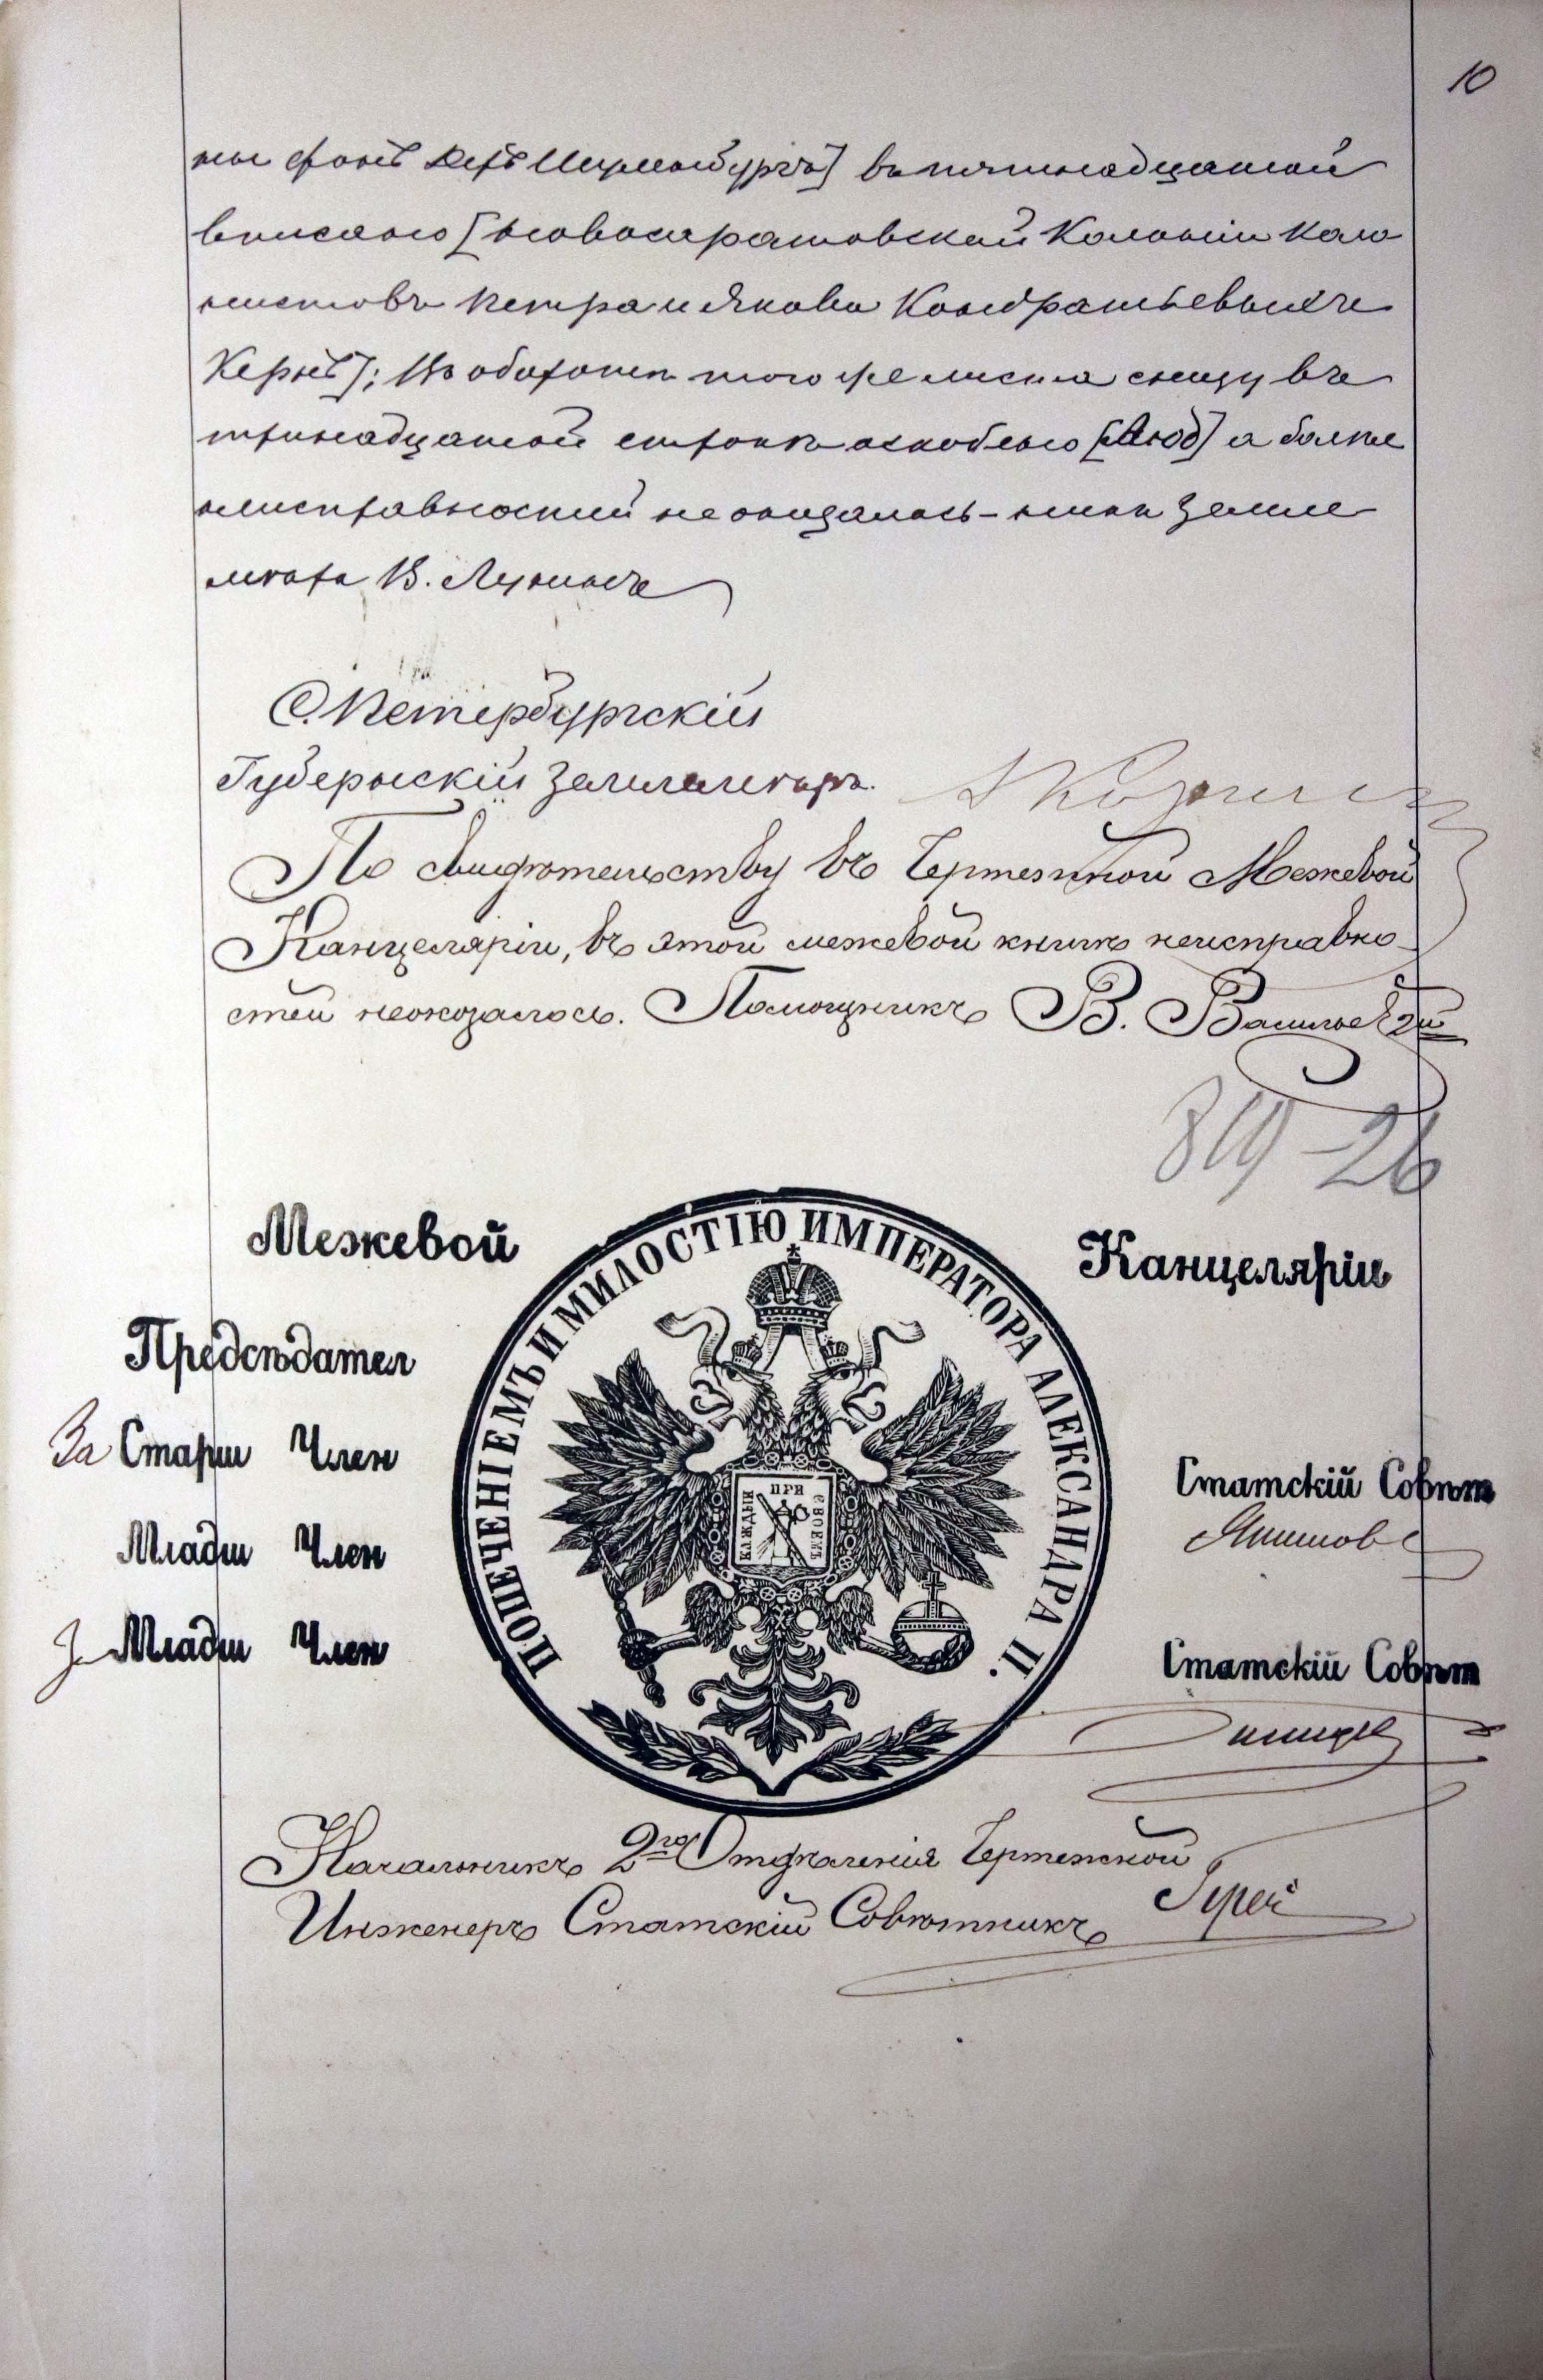 10
ны фонъ деръ Ценъ въ пятнадцатой
вписано [Новосаратовской Колоніи Коло
нистовъ Петра и Якова Кондратьевыхъ
Кернъ]; На оборотѣ того же листа снизу въ
тринадцатой строкѣ оскоблено [Люд] а болѣе
неисправностей не оказалось
мѣра В. Лунинъ
С.Петербургскій
Губернскій Землемѣръ.
По свидѣтельству въ Чертежной Межевой
Канцеляріи, въ этой межевой книгѣ неисправно-
стей неоказалось. Помощникъ В. Васильев 2й
26
Межевой
Канцеляріи
Предсѣдател
За Старш Член
Статскій Совѣт
Младш Член
За Младш Член
Статскій Совѣт
ПОПЕЧЕНІЕМЪ И МИЛОСТІЮ ИМПЕРАТОРА АЛЕКСАНДРА II.
КАЖДЫЙ ПРИ СВОЕМЪ
Начальникъ 2го Отдѣленія Чертежной
Инженеръ Статскій Совѣтникъ